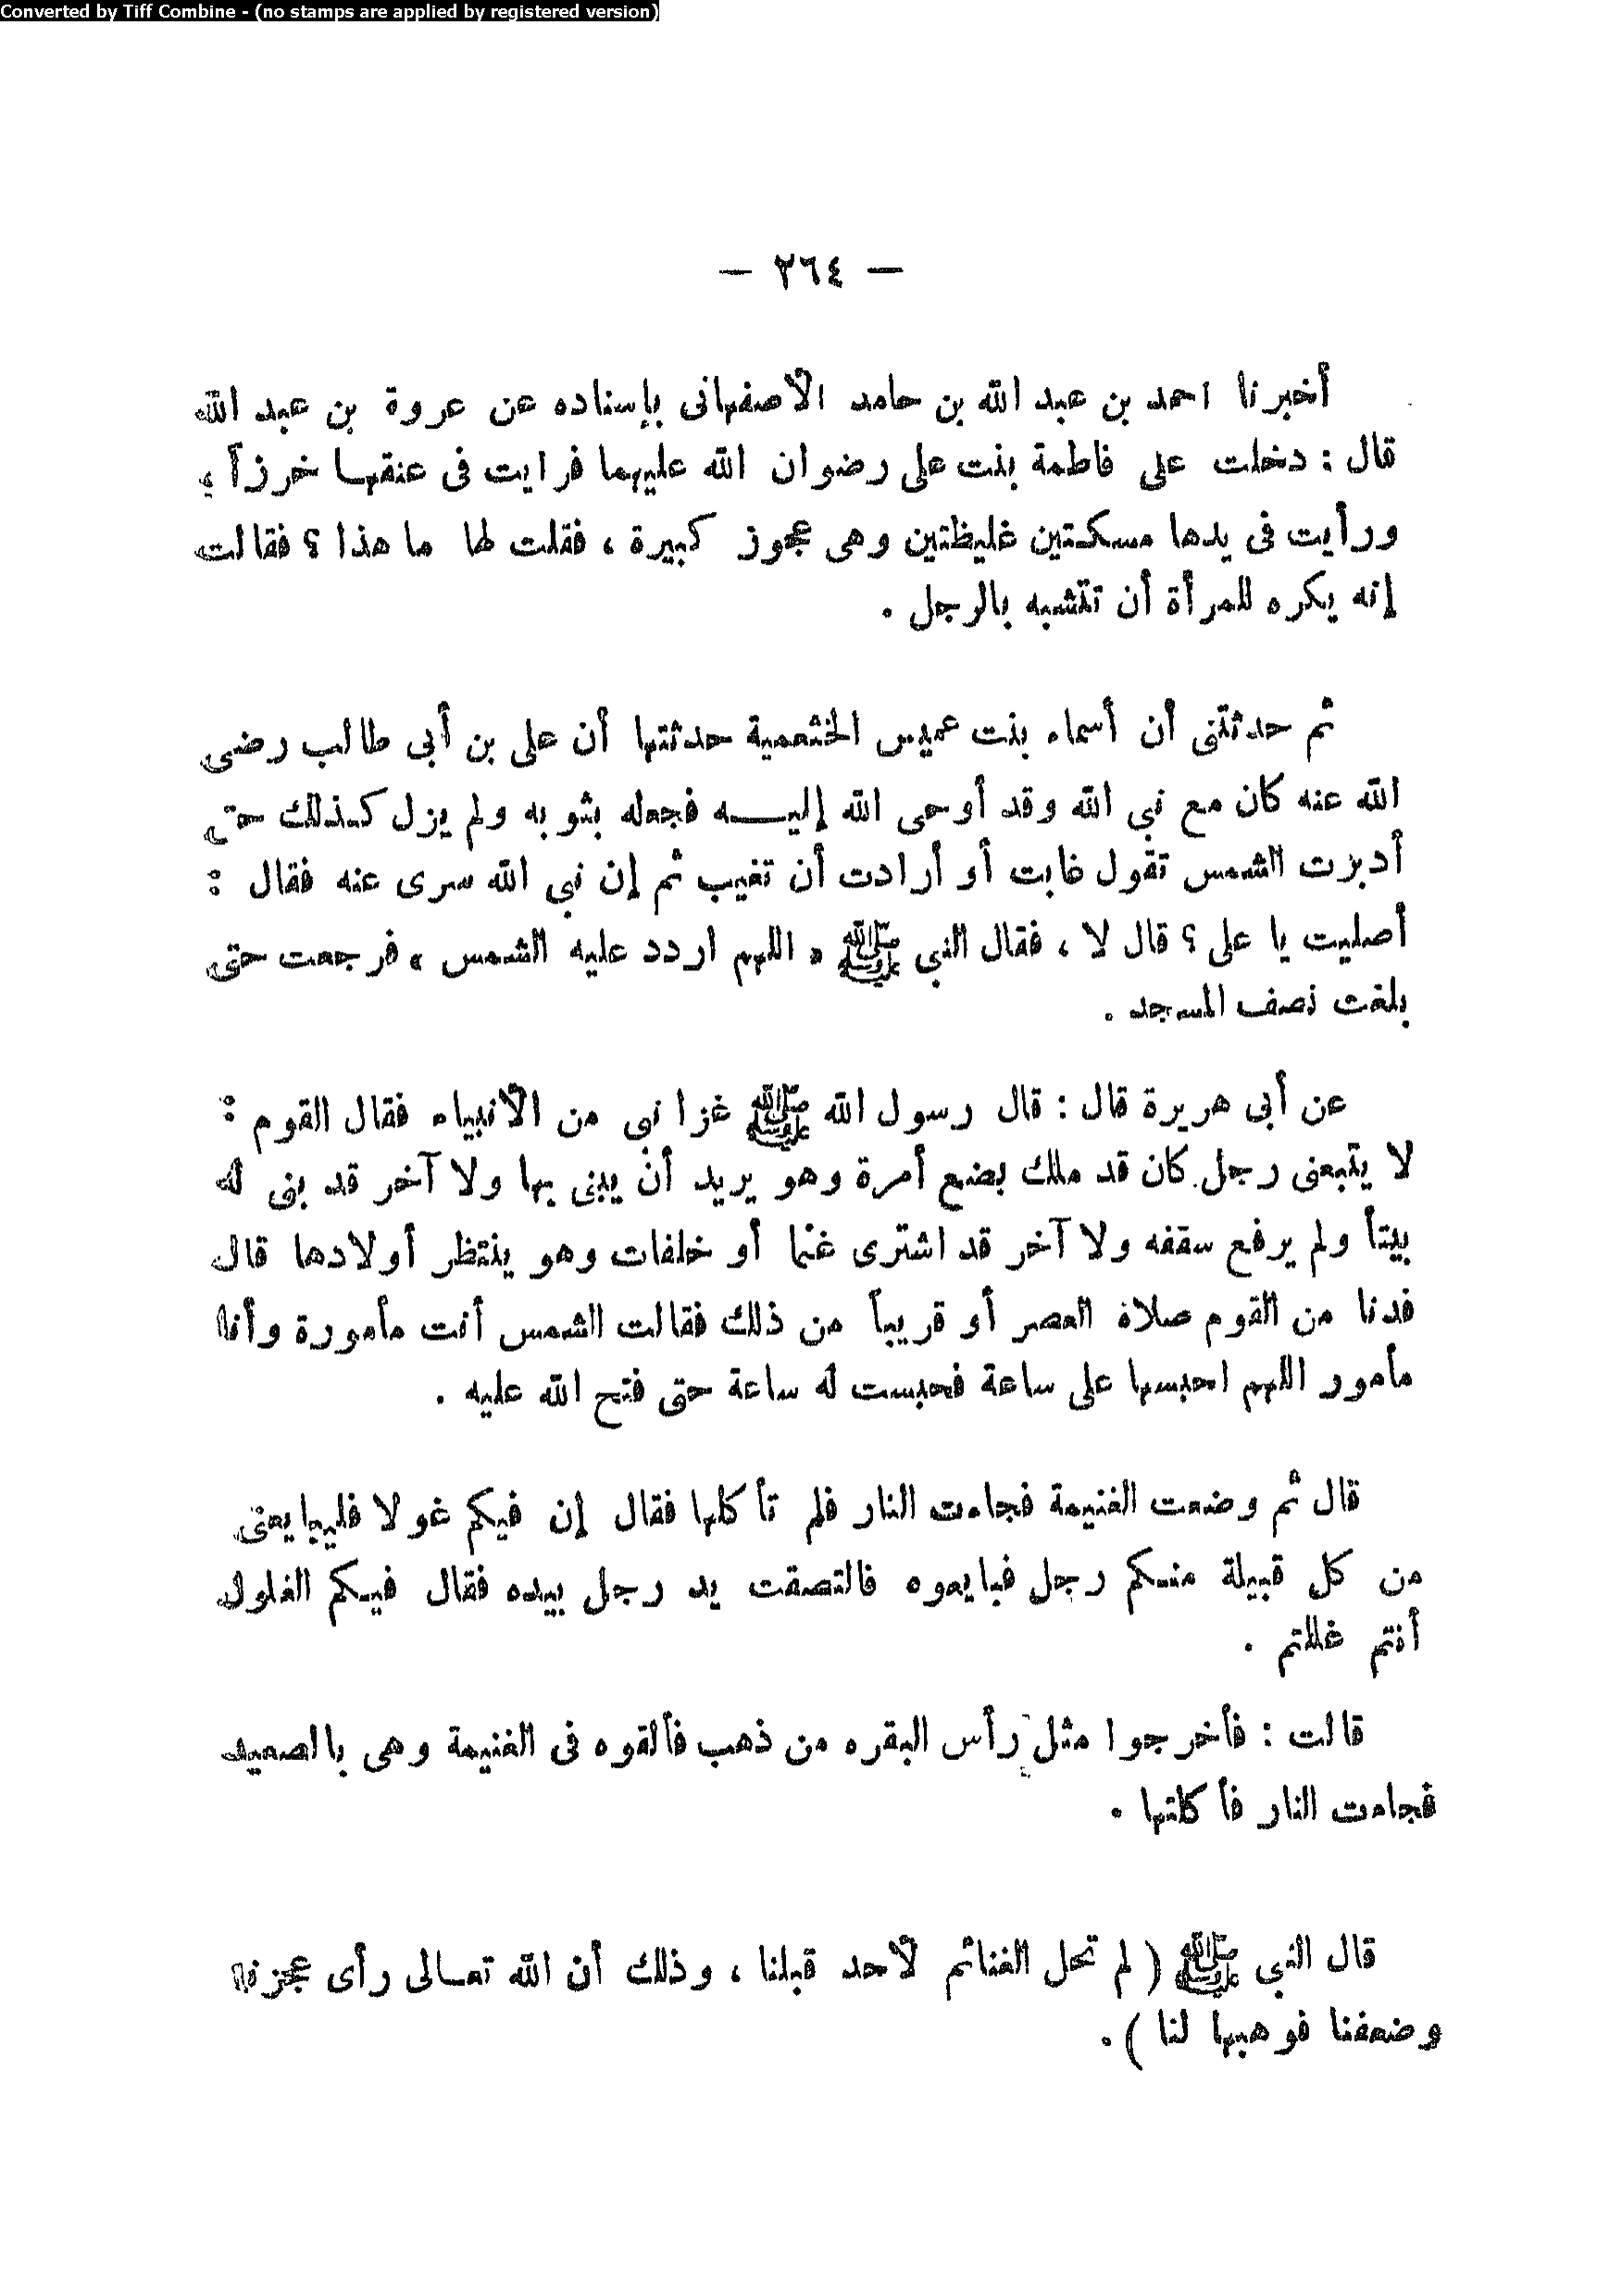 Converted by Tiff Combine - (no stamps are applied by registered version)
— ٢٦٤ —
أخبرنا احمد بن عبد الله بن حامد الأصفهانى بإسناده عن عروة بن عبد الله
قال : دخلت على فاطمة بنت على رضوان الله عليهما فرايت فى عنقها خرزاً ،
ورأيت فى يدها مسكتين غليظتين وهى عجوز كبيرة ، فقلت لها ما هذا ؟ فقالت
إنه يكره للمرأة أن تتشبه بالرجل .
ثم حدثتنى أن أسماء بنت عميس الخثعمية حدثتها أن على بن أبى طالب رضى
الله عنه كان مع نبي الله وقد أوحى الله إليـــه فجعله بثوبه ولم يزل كـذلك حتى
أدبرت الشمس تقول غابت أو أرادت أن تغيب ثم إن نبي الله سرى عنه فقال :
أصليت يا على ؟ قال لا ، فقال النبي ﷺ « اللهم اردد عليه الشمس » فرجعت حتى
بلغت نصف المسجد .
عن أبى هريرة قال : قال رسول الله ﷺ غزا نبى من الأنبياء فقال القوم :
لا يتبعنى رجل كان قد ملك بضع أمرة وهو يريد أن يبنى بها ولا آخر قد بنى له
بيتاً ولم يرفع سقفه ولا آخر قد اشترى غنما أو خلفات وهو ينتظر أولادها قال
فدنا من القوم صلاة العصر أو قريباً من ذلك فقالت الشمس أنت مأمورة وأنا
مأمور اللهم احبسها على ساعة فحبست له ساعة حتى فتح الله عليه .
قال ثم وضعت الغنيمة فجاءت النار فلم تأكلها فقال إن فيكم غولا فليبايعنى
من كل قبيلة منـكم رجل فبايعوه فالتصقت يد رجل بيده فقال فيـكم الغلول
أنتم غللتم .
قالت : فأخرجوا مثل رأس البقره من ذهب فألقوه فى الغنيمة وهى بالصعيد
فجاءت النار فأكلتها .
قال النبى ﷺ ( لم تحل الغنائم لأحد قبلنا ، وذلك أن الله تعـالى رأى عجزنا
وضعفنا فوهبها لنا ) .